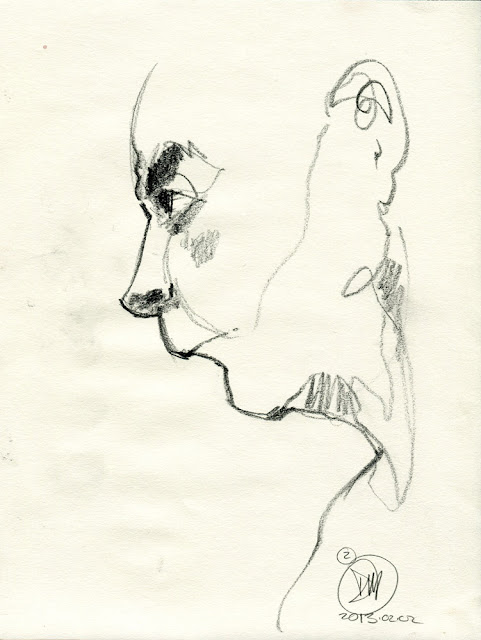 2
2013.02.02